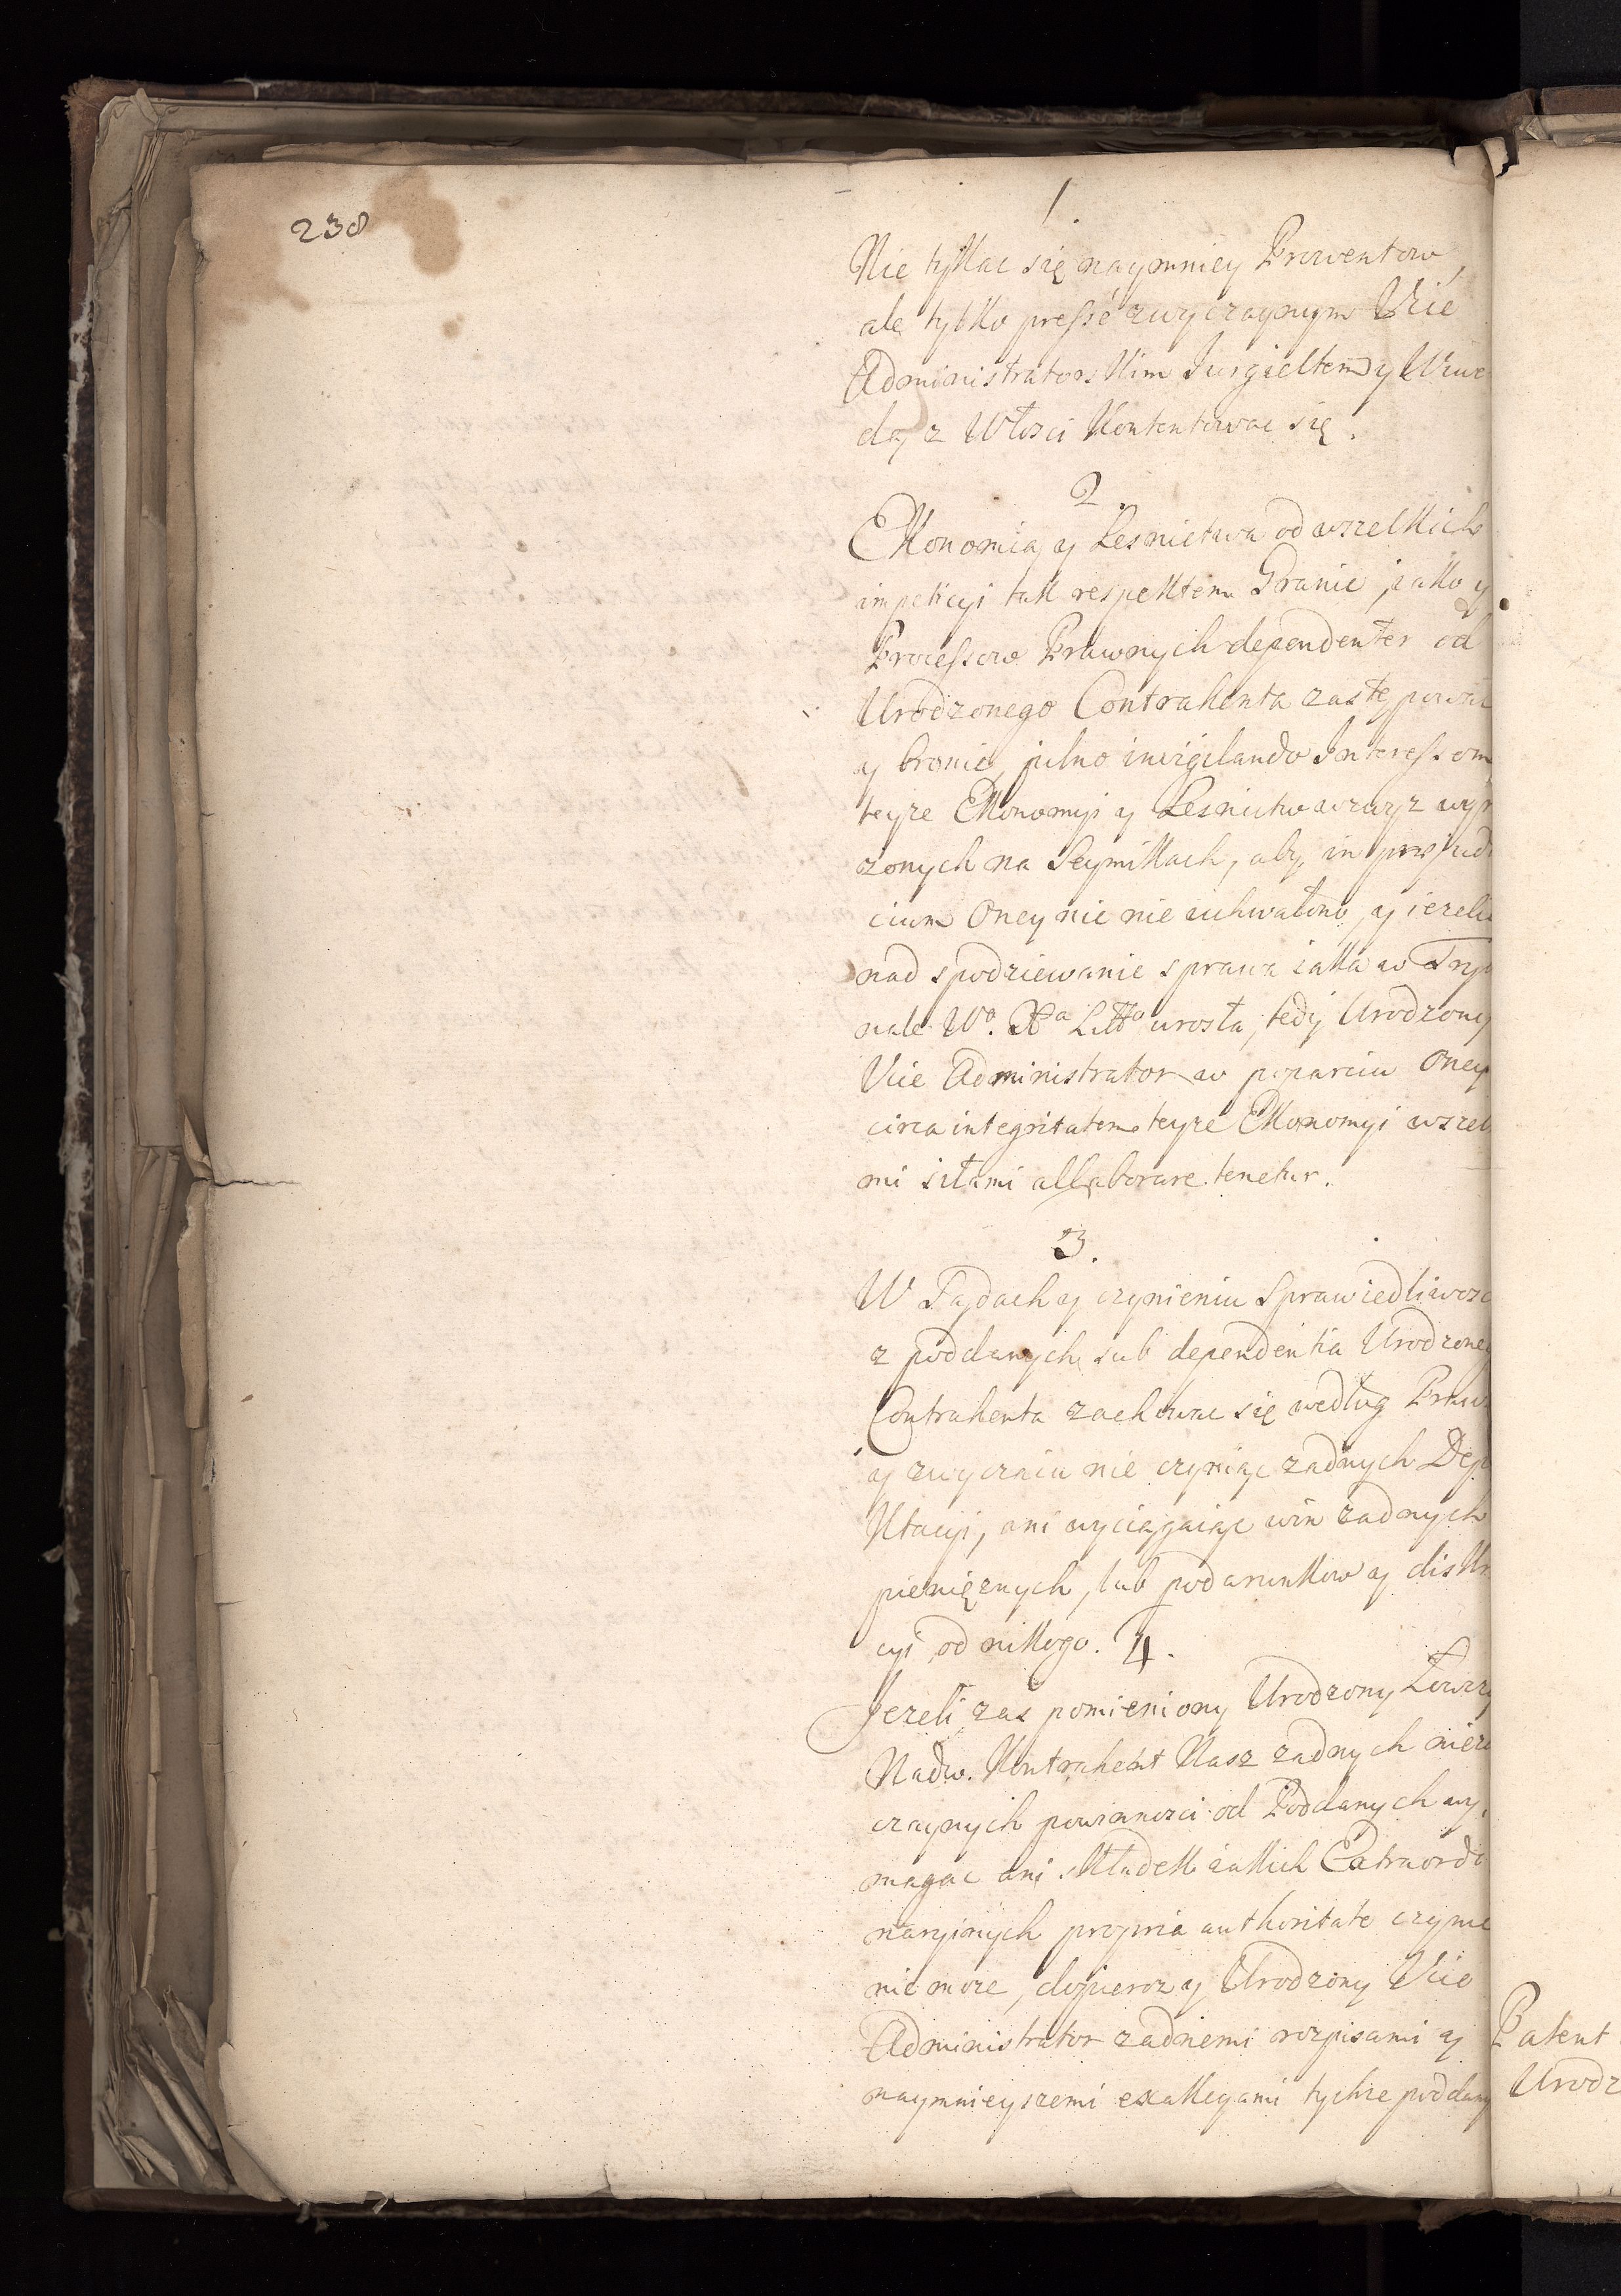 238
1.
Nie tykac się naymniey Prowentow,
ale tylko presse zwyczaynym Vice
Administratorskim Jurgieltem y Wiue
dą z Włosci kontentowac się.
2.
Ekonomią y Lesnictwa od wszelkich
impeticyi tak respektem Granic jako y
Processow Prawnych dependenter od
Urodzonego Contrahenta zastępowac
y bronic, pilno invigilando Interessom
teyże Ekonomyi y Lesnictw wzwyz wyr
zonych na Seymikach, aby in prejudi
cium Oney nic nie uchwalono, y iezeli
nad spodziewanie sprawa iaka w Tryb
nale Wo. Xa Litto urosła, tedy Urodzony
Vice Administrator w poparciu Oney
circa integritatem teyże Ekonomyi wszel
mi siłami allaborare tenetur.
3.
W Sądach y czynieniu Sprawiedliwosc
z poddanych sub dependentia Urodzoneg
Contrahenta zachowac się według Prawa
y zwyczaiu nie czyniąc zadnych Dep
ktacyi, ani wyciągaiąc win zadnych
pienięznych, lub podarunkow y diskr
cyi od nikogo. 4.
Jezeli zas pomieniony Urodzony Łowczy
Nadw. Kontrahent Nasz zadnych niezw
czaynych powinnosci od Poddanych wy,
magac ani składek iakich Extraordi
naryinych propria authoritate czynic
nie moze, dopieroz y Urodzony Vice
Administrator zadnemi rozpisami y
naymnieyszemi exakcyami tychze poddany
Patent
Urodz